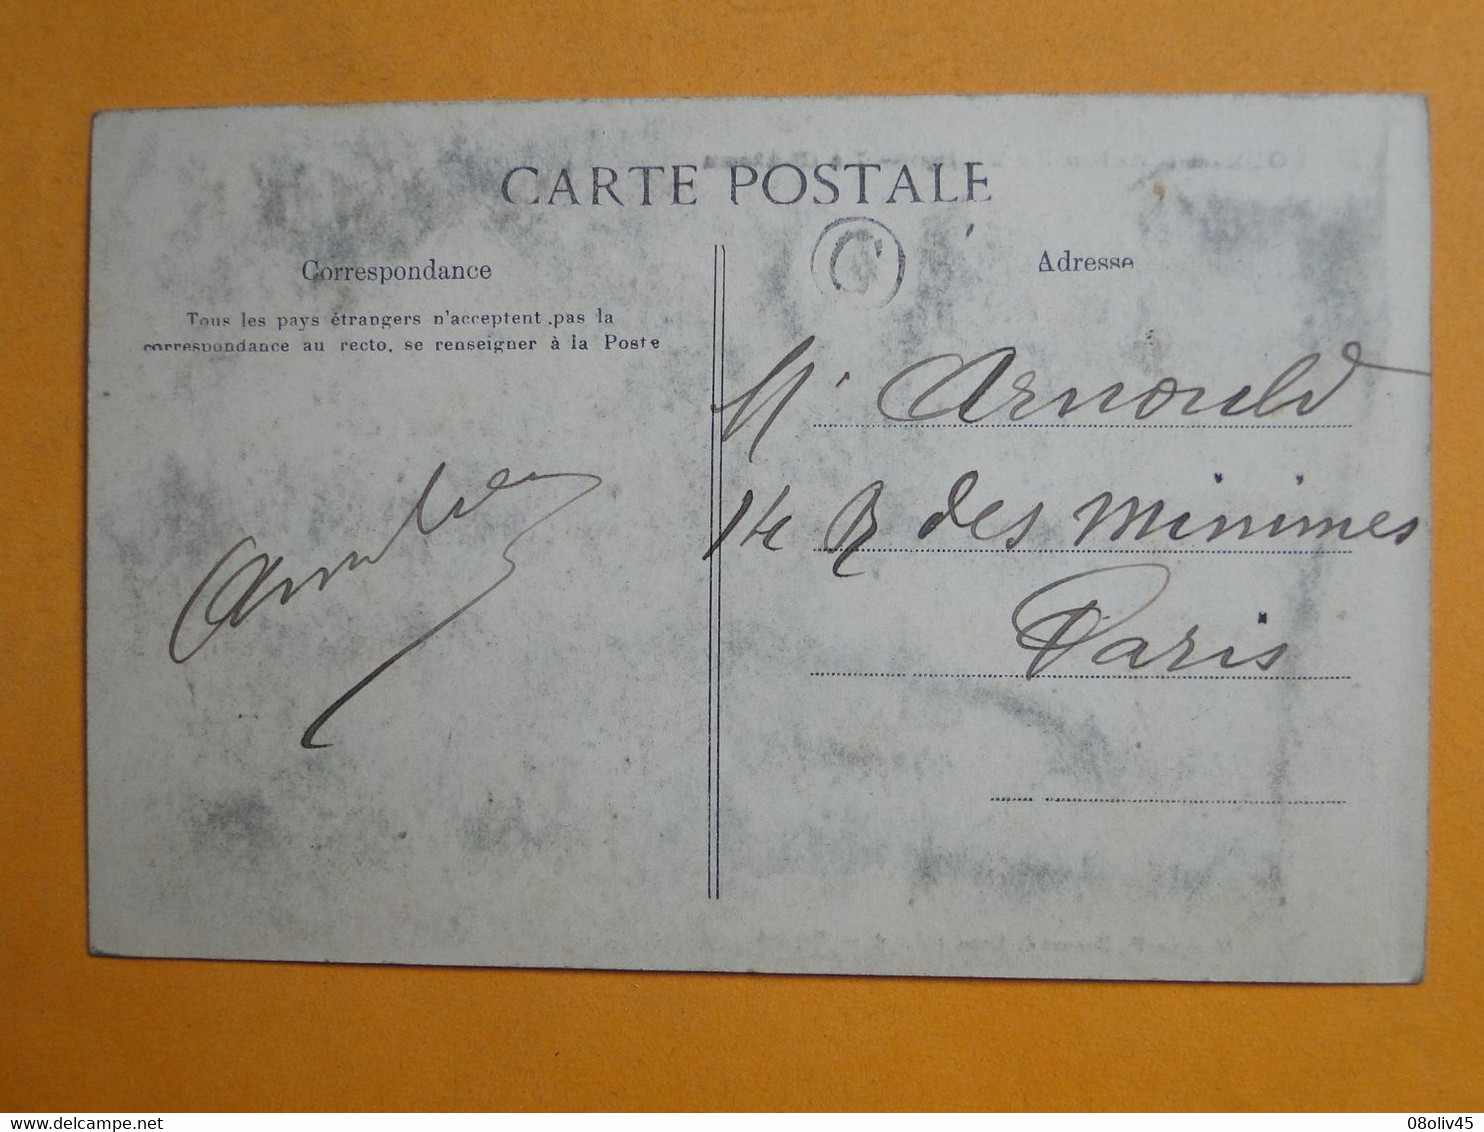 CARTE POSTALE
G
Correspondance
Adresse
Tous les pays étrangers n'acceptent pas la
correspondance au recto, se renseigner à la Poste
Mr Arnould
14 R des Minimes
Paris
delcampe.net
08oliv45